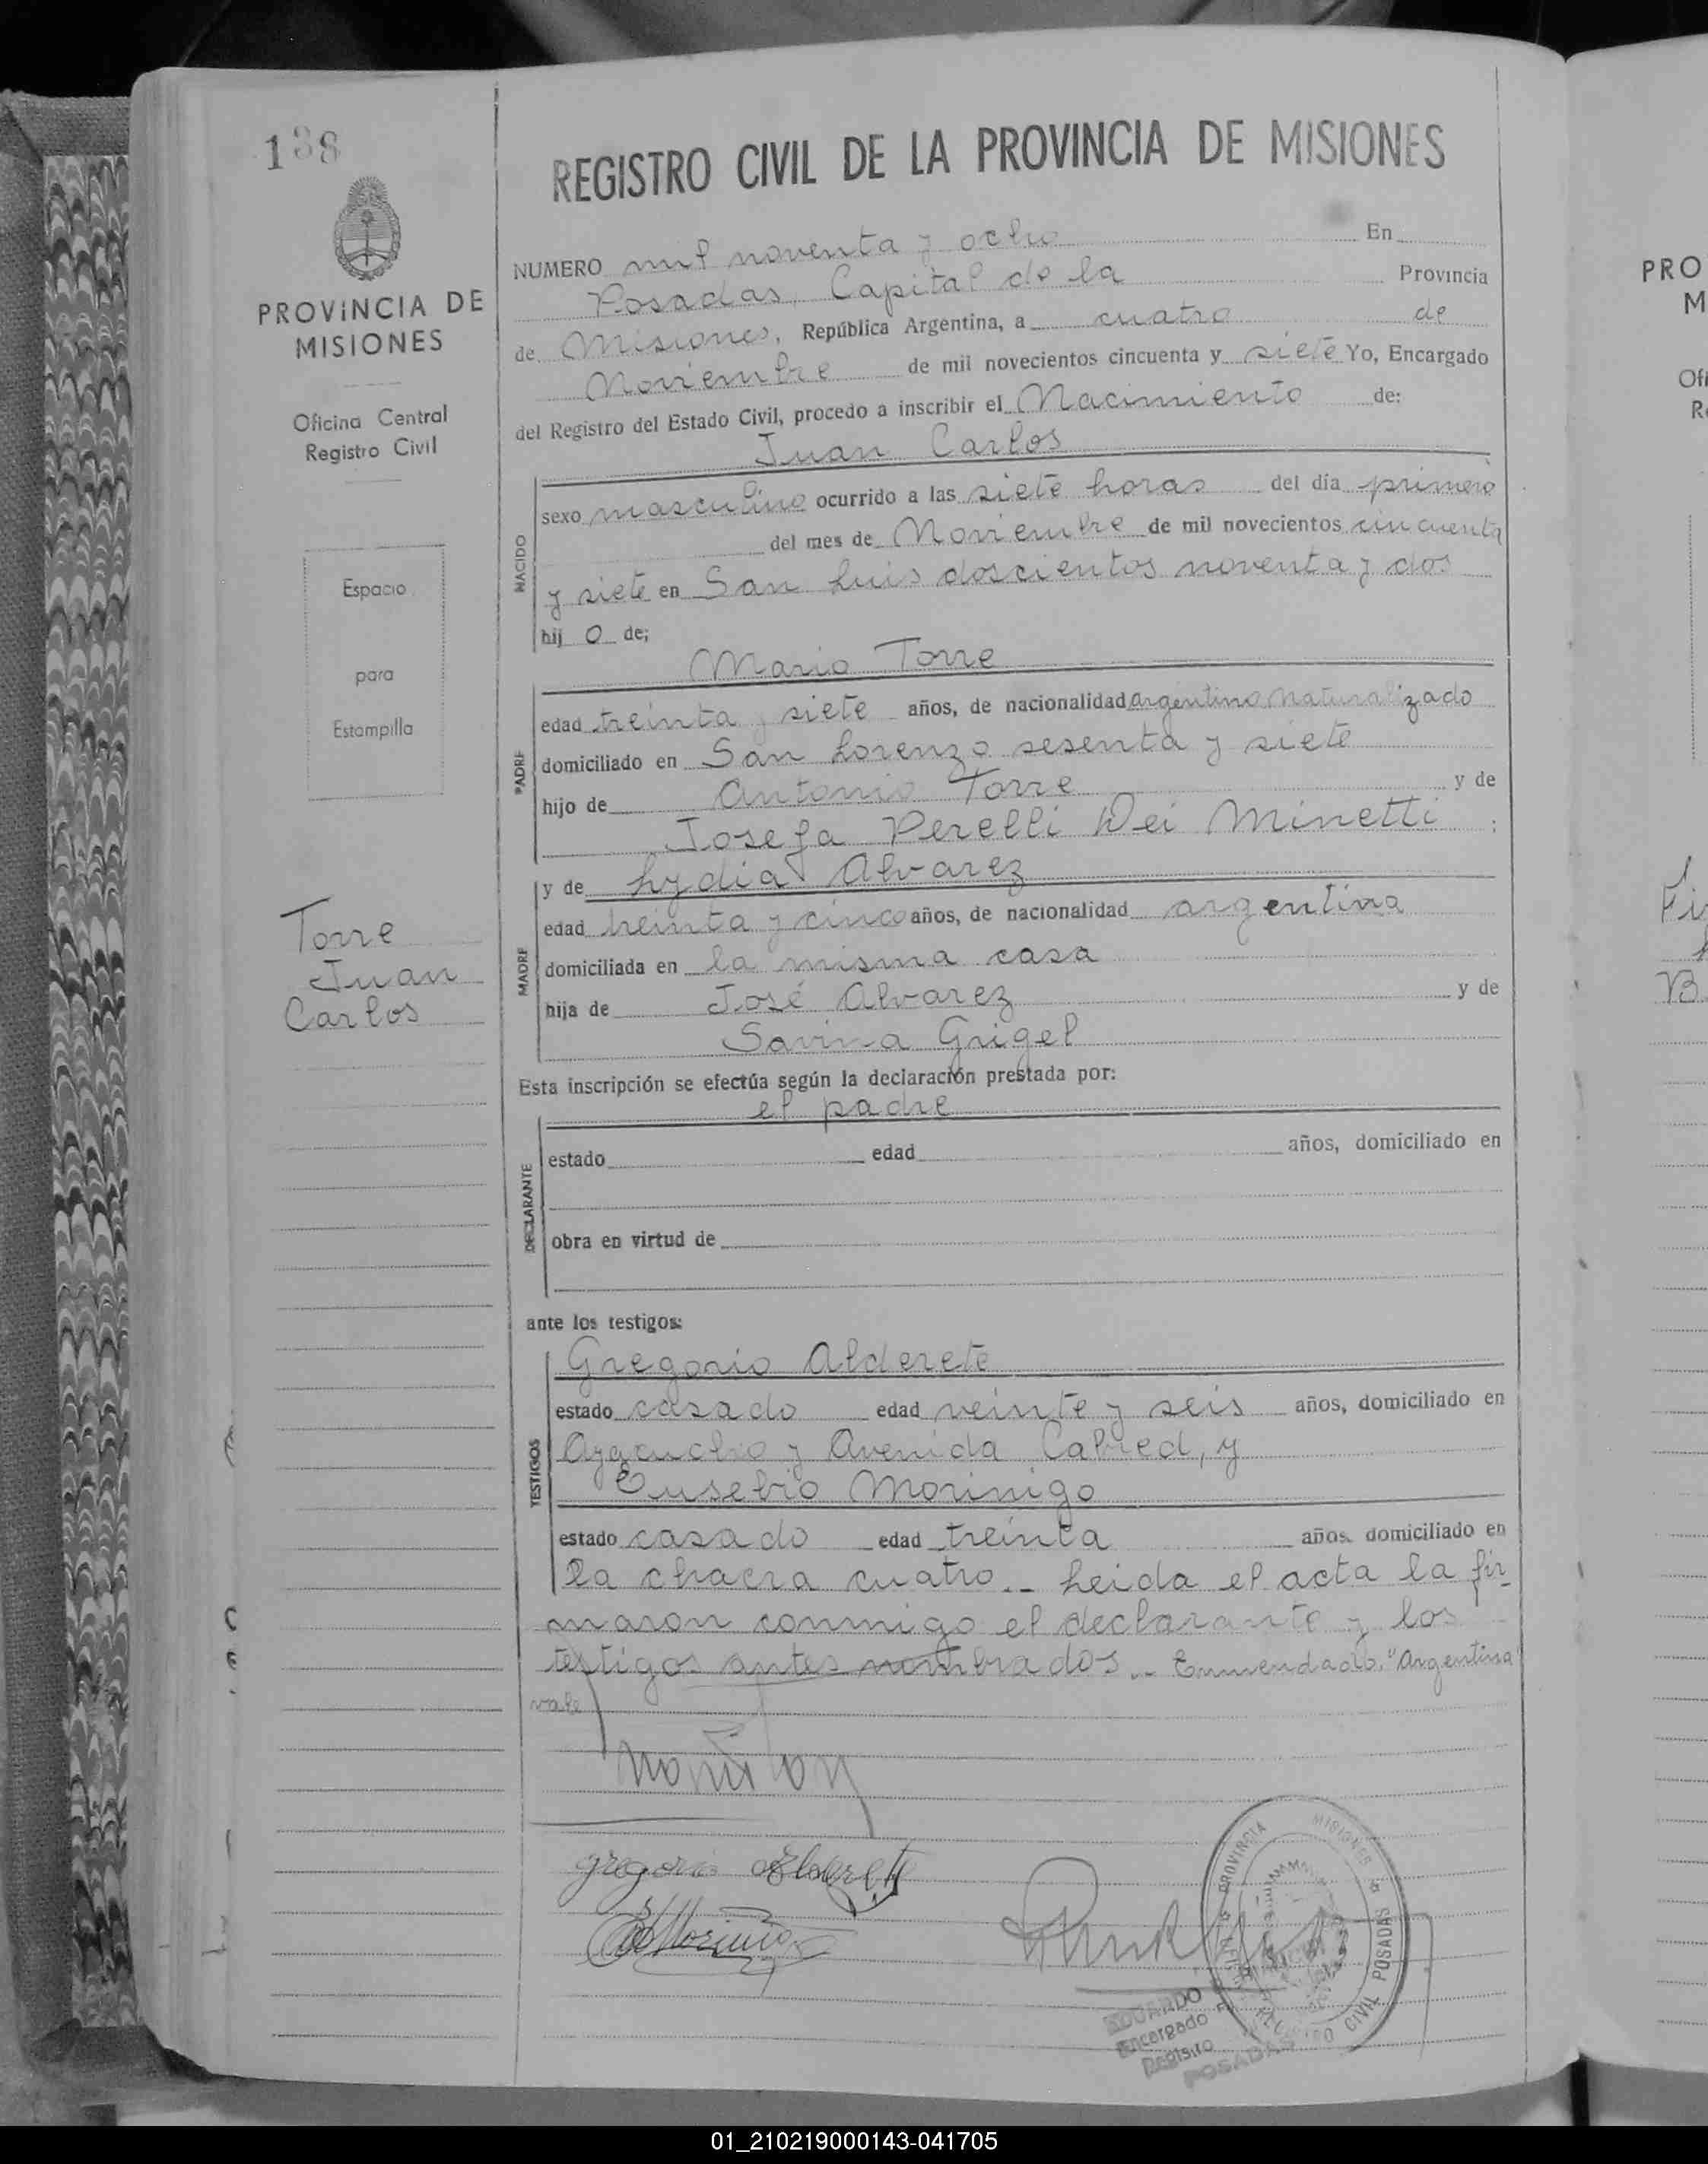 138
PROVINCIA DE
MISIONES
Oficina Central
Registro Civil
Espacio
para
Estampilla
Torre
Juan
Carlos
REGISTRO CIVIL DE LA PROVINCIA DE MISIONES
NUMERO mil noventa y ocho En
Posadas, Capital de la Provincia
de Misiones, República Argentina, a cuatro de
Noviembre de mil novecientos cincuenta y siete Yo, Encargado
del Registro del Estado Civil, procedo a inscribir el Nacimiento de:
Juan Carlos
NACIDO
sexo masculino ocurrido a las siete horas del día primero
del mes de Noviembre de mil novecientos cincuenta
y siete en San Luis doscientos noventa y dos
hij o de;
Mario Torre
PADRE
edad treinta y siete años, de nacionalidad argentino naturalizado
domiciliado en San Lorenzo sesenta y siete
hijo de Antonio Torre y de
Josefa Perelli Dei Minetti ;
MADRE
y de Lydia Alvarez
edad treinta y cinco años, de nacionalidad argentina
domiciliada en la misma casa
hija de José Alvarez y de
Savina Grigel
Esta inscripción se efectúa según la declaración prestada por:
el padre
DECLARANTE
estado edad años, domiciliado en
obra en virtud de
ante los testigos:
TESTIGOS
Gregorio Alderete
estado casado edad veinte y seis años, domiciliado en
Ayacucho y Avenida Cabred, y
Eusebio Morinigo
estado casado edad treinta años, domiciliado en
la chacra cuatro.- Leida el acta la fir
maron conmigo el declarante y los
testigos antes nombrados.- Enmendado: "Argentina"
vale
gregorio Alderete
PROVINCIA MISIONES
CIVIL POSADAS
EDUARDO
Encargado
Registro
POSADAS
PRO
M
Ofi
R
Fi
B.
01_210219000143-041705